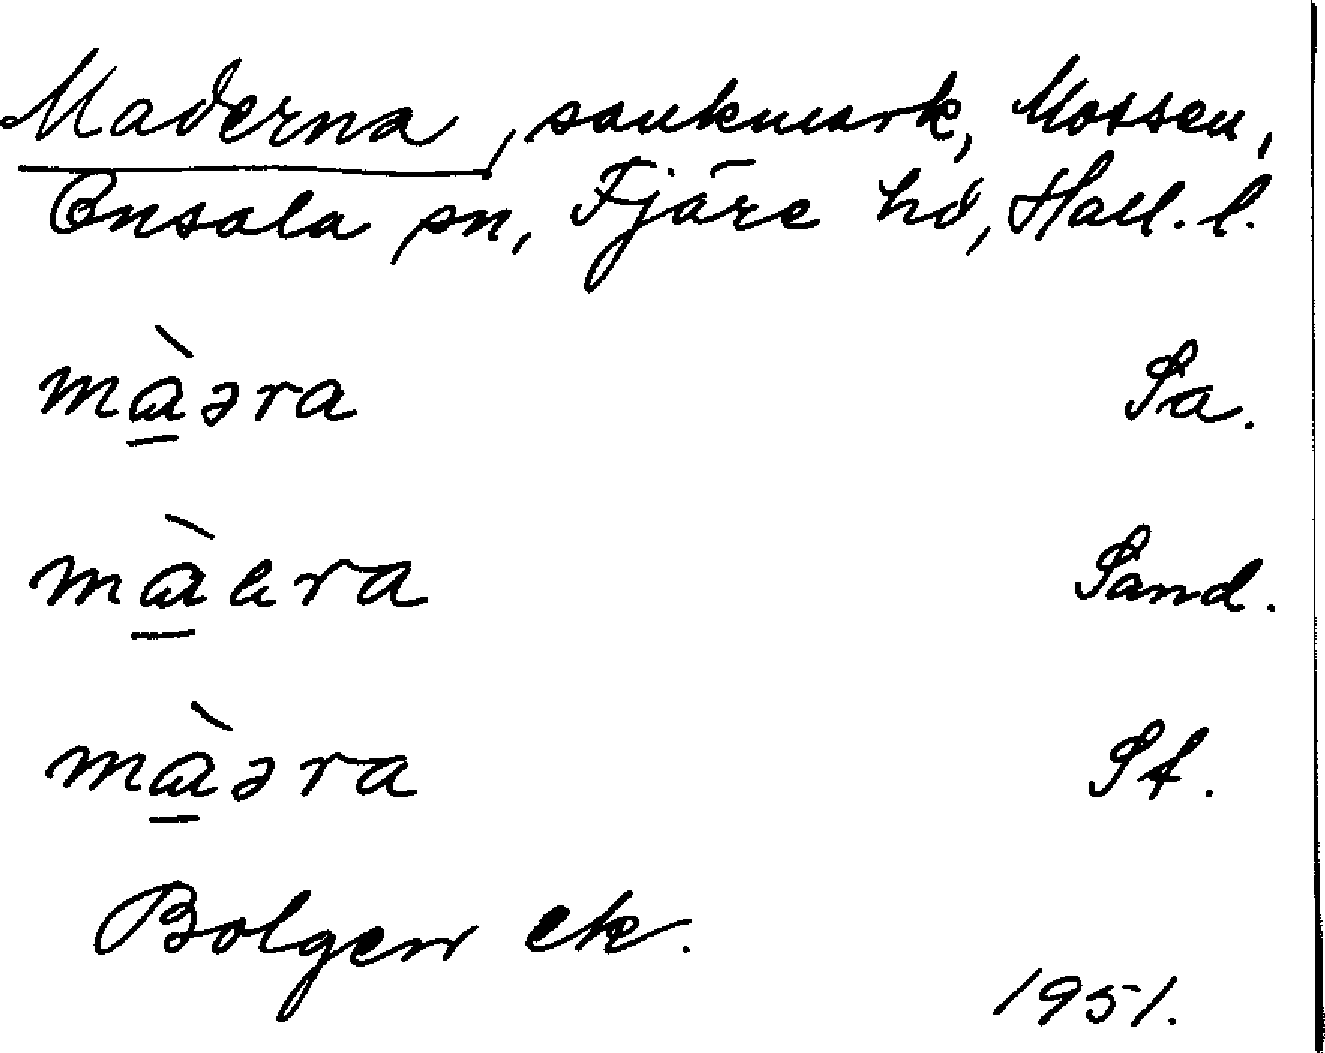 Maderna, sankmark, Mossen,
Onsala sn, Fjäre hd, Hall. l.
mɑ̠̀əra Sa.
mɑ̠̀ɛra Sand.
mɑ̠̀əra St.
Bolgen ek.
1951.